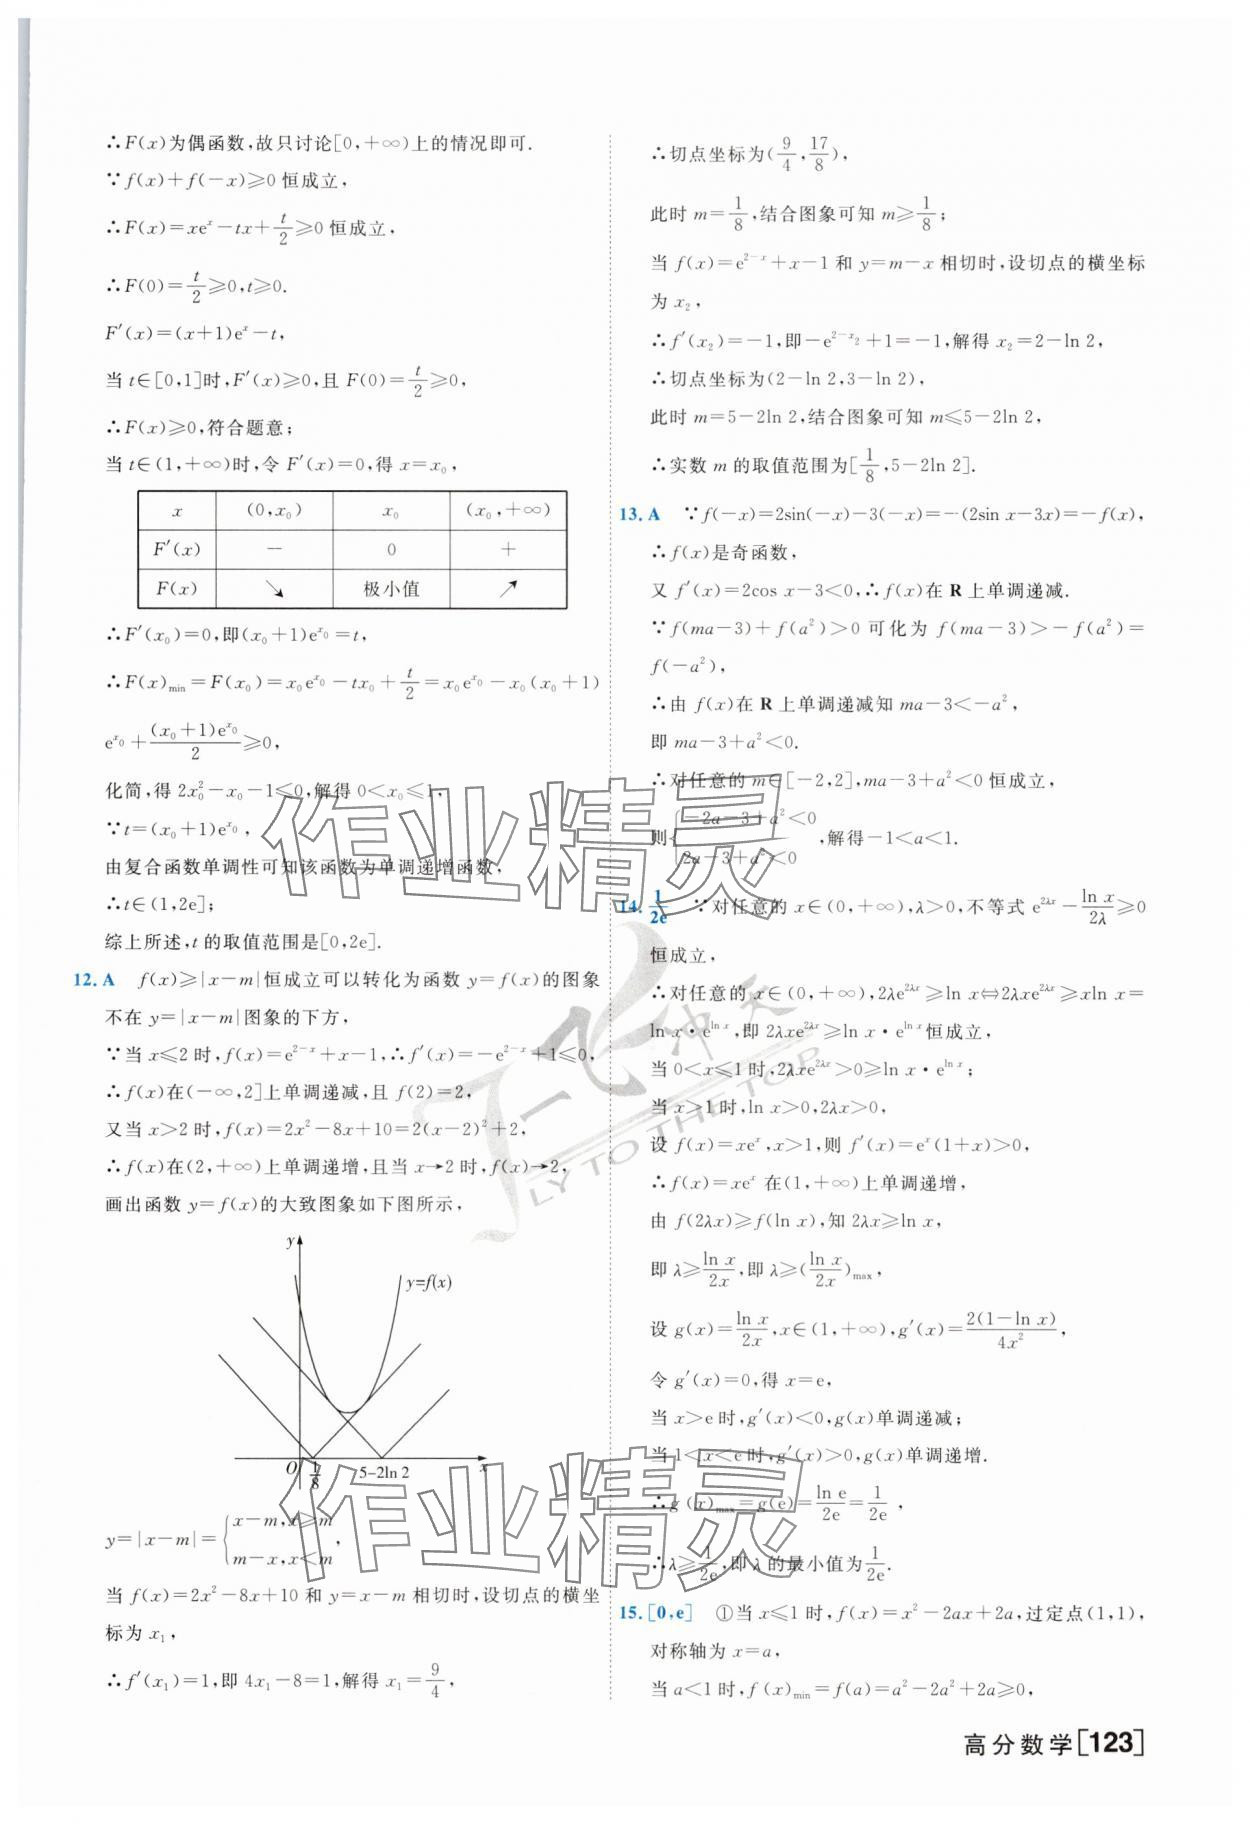 ∴F(x)为偶函数,故只讨论[0,+∞)上的情况即可.
∵f(x)+f(-x)≥0恒成立,
∴F(x)=xeˣ-tx+t/2≥0恒成立,
∴F(0)=t/2≥0,t≥0.
F′(x)=(x+1)eˣ-t,
当t∈[0,1]时,F′(x)≥0,且F(0)=t/2≥0,
∴F(x)≥0,符合题意;
当t∈(1,+∞)时,令F′(x)=0,得x=x₀,
x (0,x₀) x₀ (x₀,+∞)
F′(x) - 0 +
F(x) ↘ 极小值 ↗
∴F′(x₀)=0,即(x₀+1)e^x₀=t,
∴F(x)min=F(x₀)=x₀e^x₀-tx₀+t/2=x₀e^x₀-x₀(x₀+1)
e^x₀+(x₀+1)e^x₀/2≥0,
化简,得2x₀²-x₀-1≤0,解得0<x₀≤1,
∵t=(x₀+1)e^x₀,
由复合函数单调性可知该函数为单调递增函数,
∴t∈(1,2e];
综上所述,t的取值范围是[0,2e].
12.A f(x)≥|x-m|恒成立可以转化为函数y=f(x)的图象
不在y=|x-m|图象的下方,
∵当x≤2时,f(x)=e^(2-x)+x-1,∴f′(x)=-e^(2-x)+1≤0,
∴f(x)在(-∞,2]上单调递减,且f(2)=2,
又当x>2时,f(x)=2x²-8x+10=2(x-2)²+2,
∴f(x)在(2,+∞)上单调递增,且当x→2时,f(x)→2,
画出函数y=f(x)的大致图象如下图所示,
y
y=f(x)
O 1/8 5-2ln 2 x
y=|x-m|={x-m,x≥m
m-x,x<m,
当f(x)=2x²-8x+10和y=x-m相切时,设切点的横坐
标为x₁,
∴f′(x₁)=1,即4x₁-8=1,解得x₁=9/4,
∴切点坐标为(9/4,17/8),
此时m=1/8,结合图象可知m≥1/8;
当f(x)=e^(2-x)+x-1和y=m-x相切时,设切点的横坐标
为x₂,
∴f′(x₂)=-1,即-e^(2-x₂)+1=-1,解得x₂=2-ln 2,
∴切点坐标为(2-ln 2,3-ln 2),
此时m=5-2ln 2,结合图象可知m≤5-2ln 2,
∴实数m的取值范围为[1/8,5-2ln 2].
13.A ∵f(-x)=2sin(-x)-3(-x)=-(2sin x-3x)=-f(x),
∴f(x)是奇函数,
又f′(x)=2cos x-3<0,∴f(x)在R上单调递减.
∵f(ma-3)+f(a²)>0可化为f(ma-3)>-f(a²)=
f(-a²),
∴由f(x)在R上单调递减知ma-3<-a²,
即ma-3+a²<0.
∴对任意的m∈[-2,2],ma-3+a²<0恒成立,
则{-2a-3+a²<0
2a-3+a²<0,解得-1<a<1.
14.1/2e ∵对任意的x∈(0,+∞),λ>0,不等式e^(2λx)-ln x/2λ≥0
恒成立,
∴对任意的x∈(0,+∞),2λe^(2λx)≥ln x⇔2λxe^(2λx)≥xln x=
ln x·e^(ln x),即2λxe^(2λx)≥ln x·e^(ln x)恒成立,
当0<x≤1时,2λxe^(2λx)>0≥ln x·e^(ln x);
当x>1时,ln x>0,2λx>0,
设f(x)=xeˣ,x>1,则f′(x)=eˣ(1+x)>0,
∴f(x)=xeˣ在(1,+∞)上单调递增,
由f(2λx)≥f(ln x),知2λx≥ln x,
即λ≥ln x/2x,即λ≥(ln x/2x)max,
设g(x)=ln x/2x,x∈(1,+∞),g′(x)=2(1-ln x)/4x²,
令g′(x)=0,得x=e,
当x>e时,g′(x)<0,g(x)单调递减;
当1<x<e时,g′(x)>0,g(x)单调递增.
∴g(x)max=g(e)=ln e/2e=1/2e,
∴λ≥1/2e,即λ的最小值为1/2e.
15.[0,e] ①当x≤1时,f(x)=x²-2ax+2a,过定点(1,1),
对称轴为x=a,
当a<1时,f(x)min=f(a)=a²-2a²+2a≥0,
作业精灵
一飞冲天
FLY TO THE TOP
作业精灵
高分数学[123]